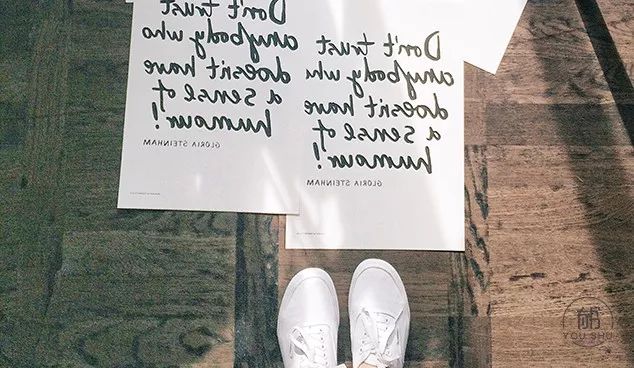 Don't trust
anybody who
doesn't have
a sense of
humour!
GLORIA STEINHAM
Don't trust
anybody wh
doesn't have
a sense of
humour!
GLORIA STEINHAM
YOU SHU